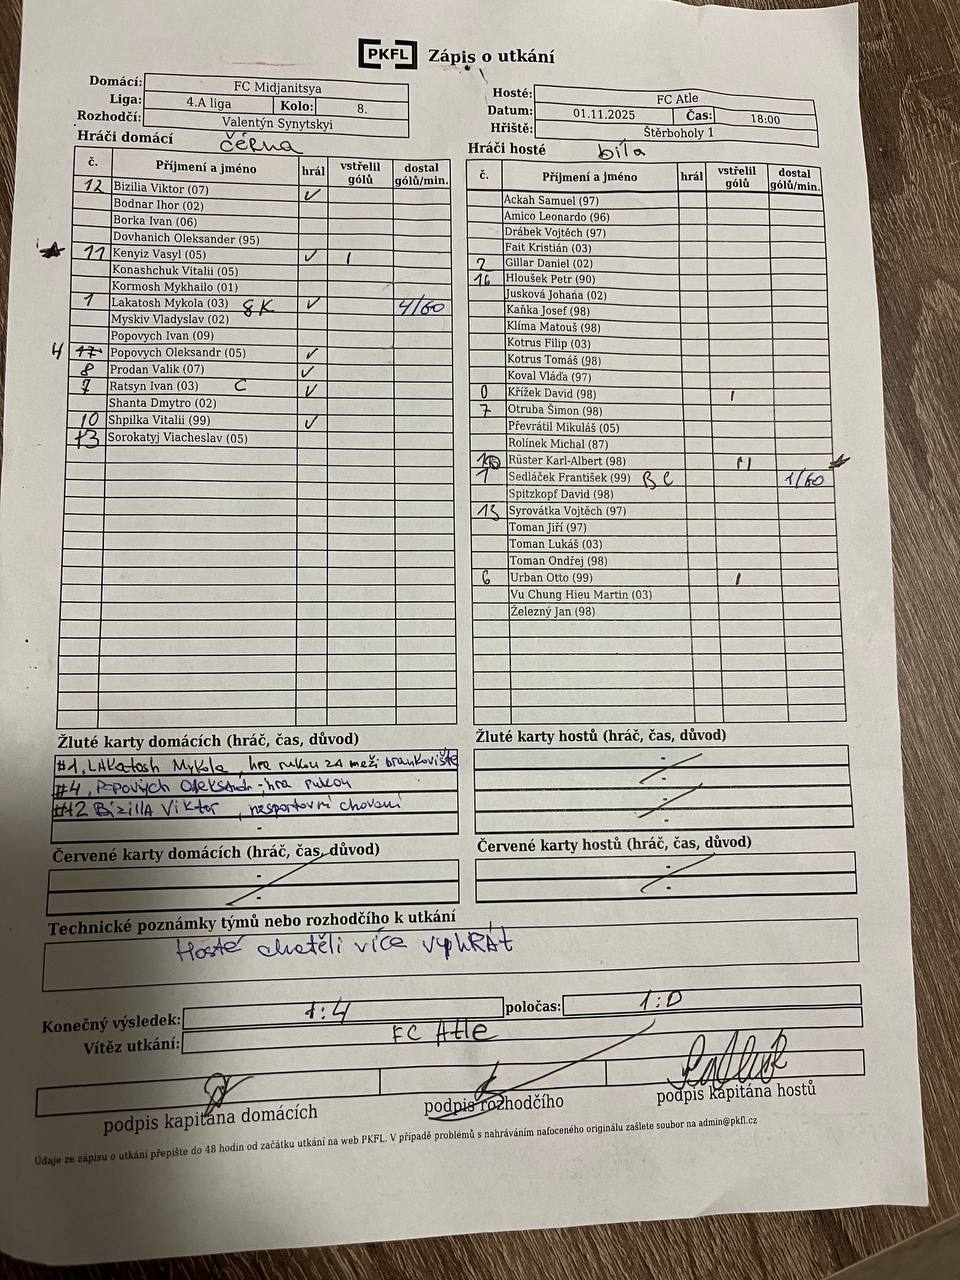 PKFL Zápis o utkání
Domácí: FC Midjanitsya
Liga: 4.A liga Kolo: 8.
Rozhodčí: Valentýn Synytskyi
Hosté: FC Atle
Datum: 01.11.2025 Čas: 18:00
Hřiště: Štěrboholy 1
Hráči domácí černa
č. Příjmení a jméno hrál vstřelil gólů dostal gólů/min.
12 Bizilia Viktor (07) ✓
Bodnar Ihor (02)
Borka Ivan (06)
Dovhanich Oleksander (95)
★ 11 Kenyiz Vasyl (05) ✓ I
Konashchuk Vitalii (05)
Kormosh Mykhailo (01)
1 Lakatosh Mykola (03) GK ✓ 4/60
Myskiv Vladyslav (02)
Popovych Ivan (09)
4 17 Popovych Oleksandr (05) ✓
8 Prodan Valik (07) ✓
7 Ratsyn Ivan (03) C ✓
Shanta Dmytro (02)
10 Shpilka Vitalii (99) ✓
13 Sorokatyj Viacheslav (05)
Hráči hosté bíla
č. Příjmení a jméno hrál vstřelil gólů dostal gólů/min.
Ackah Samuel (97)
Amico Leonardo (96)
Drábek Vojtěch (97)
Fait Kristián (03)
2 Gillar Daniel (02)
16 Hloušek Petr (90)
Jusková Johana (02)
Kaňka Josef (98)
Klíma Matouš (98)
Kotrus Filip (03)
Kotrus Tomáš (98)
Koval Vláďa (97)
0 Křížek David (98) I
7 Otruba Šimon (98)
Převrátil Mikuláš (05)
Rolínek Michal (87)
Rüster Karl-Albert (98) II ★
1 Sedláček František (99) BC 1/60
Spitzkopf David (98)
13 Syrovátka Vojtěch (97)
Toman Jiří (97)
Toman Lukáš (03)
Toman Ondřej (98)
6 Urban Otto (99) I
Vu Chung Hieu Martin (03)
Železný Jan (98)
Žluté karty domácích (hráč, čas, důvod)
#1, LAKatosh Mykola, hra rukou za meži brankoviště
#4, Popovych Oleksandr - hra rukou
#12 BizillA Viktor, nesportovni chovani
-
Žluté karty hostů (hráč, čas, důvod)
-
-
-
-
Červené karty domácích (hráč, čas, důvod)
-
-
Červené karty hostů (hráč, čas, důvod)
-
-
Technické poznámky týmů nebo rozhodčího k utkání
Hosté chatěli více vyhRÁt
Konečný výsledek: 1:4 poločas: 1:0
Vítěz utkání: FC Atle
podpis kapitána domácích podpis rozhodčího podpis kapitána hostů
Údaje ze zápisu o utkání přepište do 48 hodin od začátku utkání na web PKFL. V případě problémů s nahráváním nafoceného originálu zašlete soubor na admin@pkfl.cz